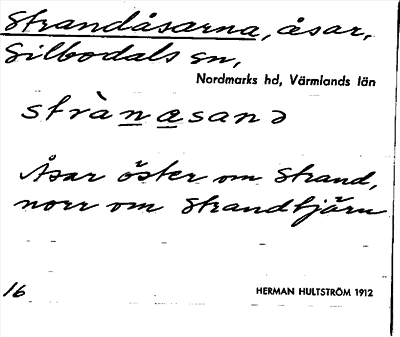 Strandåsarna, åsar,
Silbodals sn,
Nordmarks hd, Värmlands län
strànasanə
Åsar öster om Strand,
norr om Strandtjärn
16
HERMAN HULTSTRÖM 1912